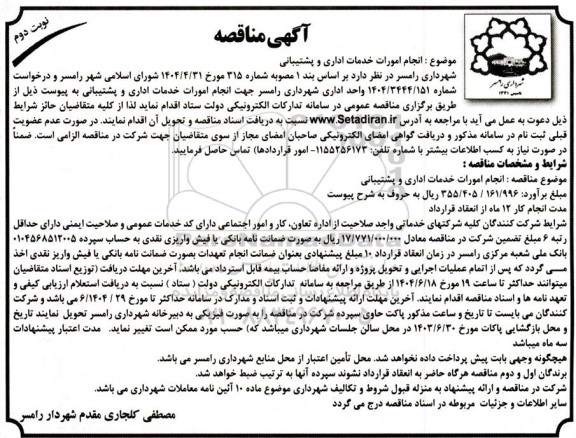 نوبت دوم
آگهی مناقصه
شهرداری رامسر
موضوع : انجام امورات خدمات اداری و پشتیبانی
شهرداری رامسر در نظر دارد بر اساس بند ۱ مصوبه شماره ۳۱۵ مورخ ۱۴۰۴/۴/۳۱ شورای اسلامی شهر رامسر و درخواست
شماره ۱۴۰۴/۳۴۴۴/۱۵۱ واحد اداری شهرداری رامسر جهت انجام امورات خدمات اداری و پشتیبانی به پیوست ذیل از
طریق برگزاری مناقصه عمومی در سامانه تدارکات الکترونیکی دولت ستاد اقدام نماید لذا از کلیه متقاضیان حائز شرایط
ذیل دعوت به عمل می آید با مراجعه به آدرس www.Setadiran.ir نسبت به دریافت اسناد مناقصه و تحویل آن اقدام نمایند. در صورت عدم عضویت
قبلی ثبت نام در سامانه مذکور و دریافت گواهی امضای الکترونیکی صاحبان امضای مجاز از سوی متقاضیان جهت شرکت در مناقصه الزامی است. ضمناً
در صورت نیاز به کسب اطلاعات بیشتر با شماره تلفن: ۰۱۱۵۵۲۵۶۱۷۳ امور قراردادها) تماس حاصل فرمایید.
شرایط و مشخصات مناقصه :
موضوع مناقصه : انجام امورات خدمات اداری و پشتیبانی
مبلغ برآورد: ۳۵۵/۴۰۵ /۱۶۱/۹۹۶ ریال به حروف به شرح پیوست
مدت انجام کار ۱۲ ماه از انعقاد قرارداد
شرایط شرکت کنندگان کلیه شرکتهای خدماتی واجد صلاحیت از اداره تعاون، کار و امور اجتماعی دارای کد خدمات عمومی و صلاحیت ایمنی دارای حداقل
رتبه ۶ مبلغ تضمین شرکت در مناقصه معادل ریال به صورت ضمانت نامه بانکی یا فیش واریزی نقدی به حساب سپرده ۰۱۰۴۵۶۸۵۱۲۰۰۵
بانک ملی شعبه مرکزی رامسر در زمان انعقاد قرارداد ۱۰ مبلغ پیشنهادی بعنوان ضمانت انجام تعهدات بصورت ضمانت نامه بانکی یا فیش واریز نقدی اخذ
می گردد که پس از اتمام عملیات اجرایی و تحویل پروژه و ارائه مفاصا حساب بیمه قابل استرداد می باشد. آخرین مهلت دریافت (توزیع اسناد متقاضیان
میتوانند حداکثر تا ساعت ۱۹ مورخ ۱۴۰۴/۶/۱۸ از طریق مراجعه به سامانه تدارکات الکترونیکی دولت ( ستاد ) نسبت به دریافت استعلام ارزیابی کیفی و
تعهد نامه ها و اسناد مناقصه اقدام نمایند. آخرین مهلت ارائه پیشنهادات و ثبت اسناد و مدارک در سامانه حداکثر تا مورخ ۲۹ / ۶/۱۴۰۴ می باشد و شرکت
کنندگان می بایست تا تاریخ و ساعت مذکور پاکت حاوی سپرده شرکت در مناقصه را بصورت فیزیکی به دبیرخانه شهرداری رامسر تحویل نمایند تاریخ
و محل بازگشایی پاکات مورخ ۱۴۰۳/۶/۳۰ در محل سالن جلسات شهرداری میباشد که ( بر حسب مورد ممکن است تغییر نماید. مدت اعتبار پیشنهادات
سه ماه میباشد
هیچگونه وجهی بابت پیش پرداخت داده نخواهد شد. محل تأمین اعتبار از محل منابع شهرداری رامسر می باشد.
برندگان اول و دوم مناقصه هرگاه حاضر به انعقاد قرارداد نشوند سپرده آنها به ترتیب ضبط خواهد شد.
شرکت در مناقصه و ارائه پیشنهاد به منزله قبول شروط و تکالیف شهرداری موضوع ماده ۱۰ آئین نامه معاملات شهرداری می باشد.
سایر اطلاعات و جزئیات مربوطه در اسناد مناقصه درج می گردد
مصطفی کلجاری مقدم شهردار رامسر